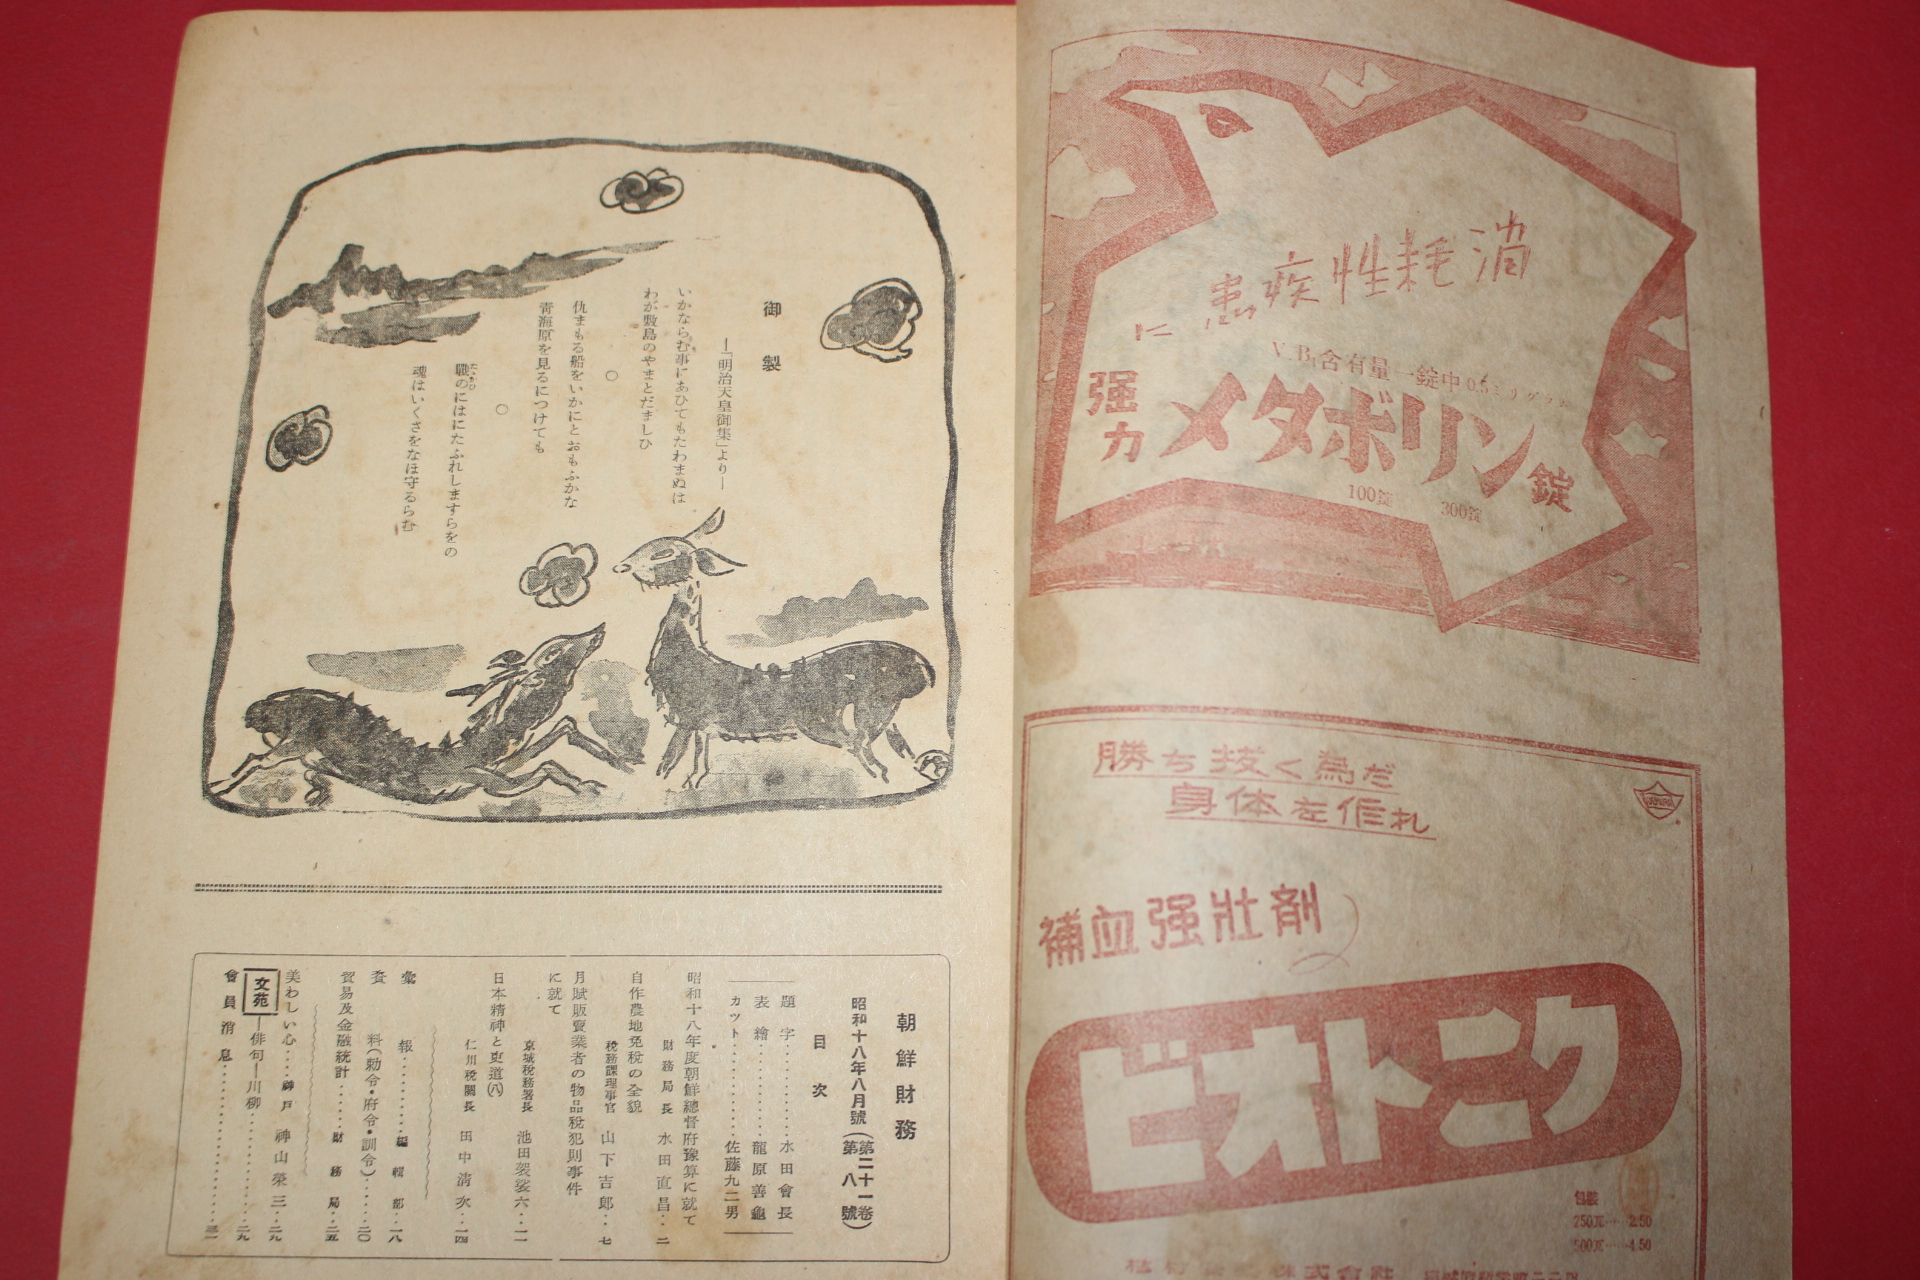 消耗性疾患に
V.B₁含有量一錠中0.5ミリグラム
强力メタボリン錠
100錠 300錠
勝ち抜く為だ
身体を作れ
補血强壯劑
ビオトニク
包裝
250瓦……2.50
500瓦……4.50
御製
―「明治天皇御集」より―
いかならむ事にあひてもたわまぬは
わが敷島のやまとだましひ
○
仇まもる船をいかにとおもふかな
靑海原を見るにつけても
○
戰のにはにたふれしますらをの
魂はいくさをなほ守るらむ
朝鮮財務
昭和十八年八月號(第二十一卷第八號)
目次
題字……………水田會長
表繪……………龍原善龜
カツト……………佐藤九二男
昭和十八年度朝鮮總督府豫算に就て
財務局長 水田直昌‥二
自作農地免稅の全貌
稅務課理事官 山下吉郎‥七
月賦販賣業者の物品稅犯則事件
に就て
京城稅務署長 池田袈裟六‥一一
日本精神と吏道(八)
仁川稅關長 田中淸次‥一四
彙報……………編輯部‥一八
資料(勅令・府令・訓令)……二〇
貿易及金融統計………財務局‥二五
美わしい心……神戶 神山榮三‥二九
文苑―俳句―川柳……………二九
會員消息……………三一